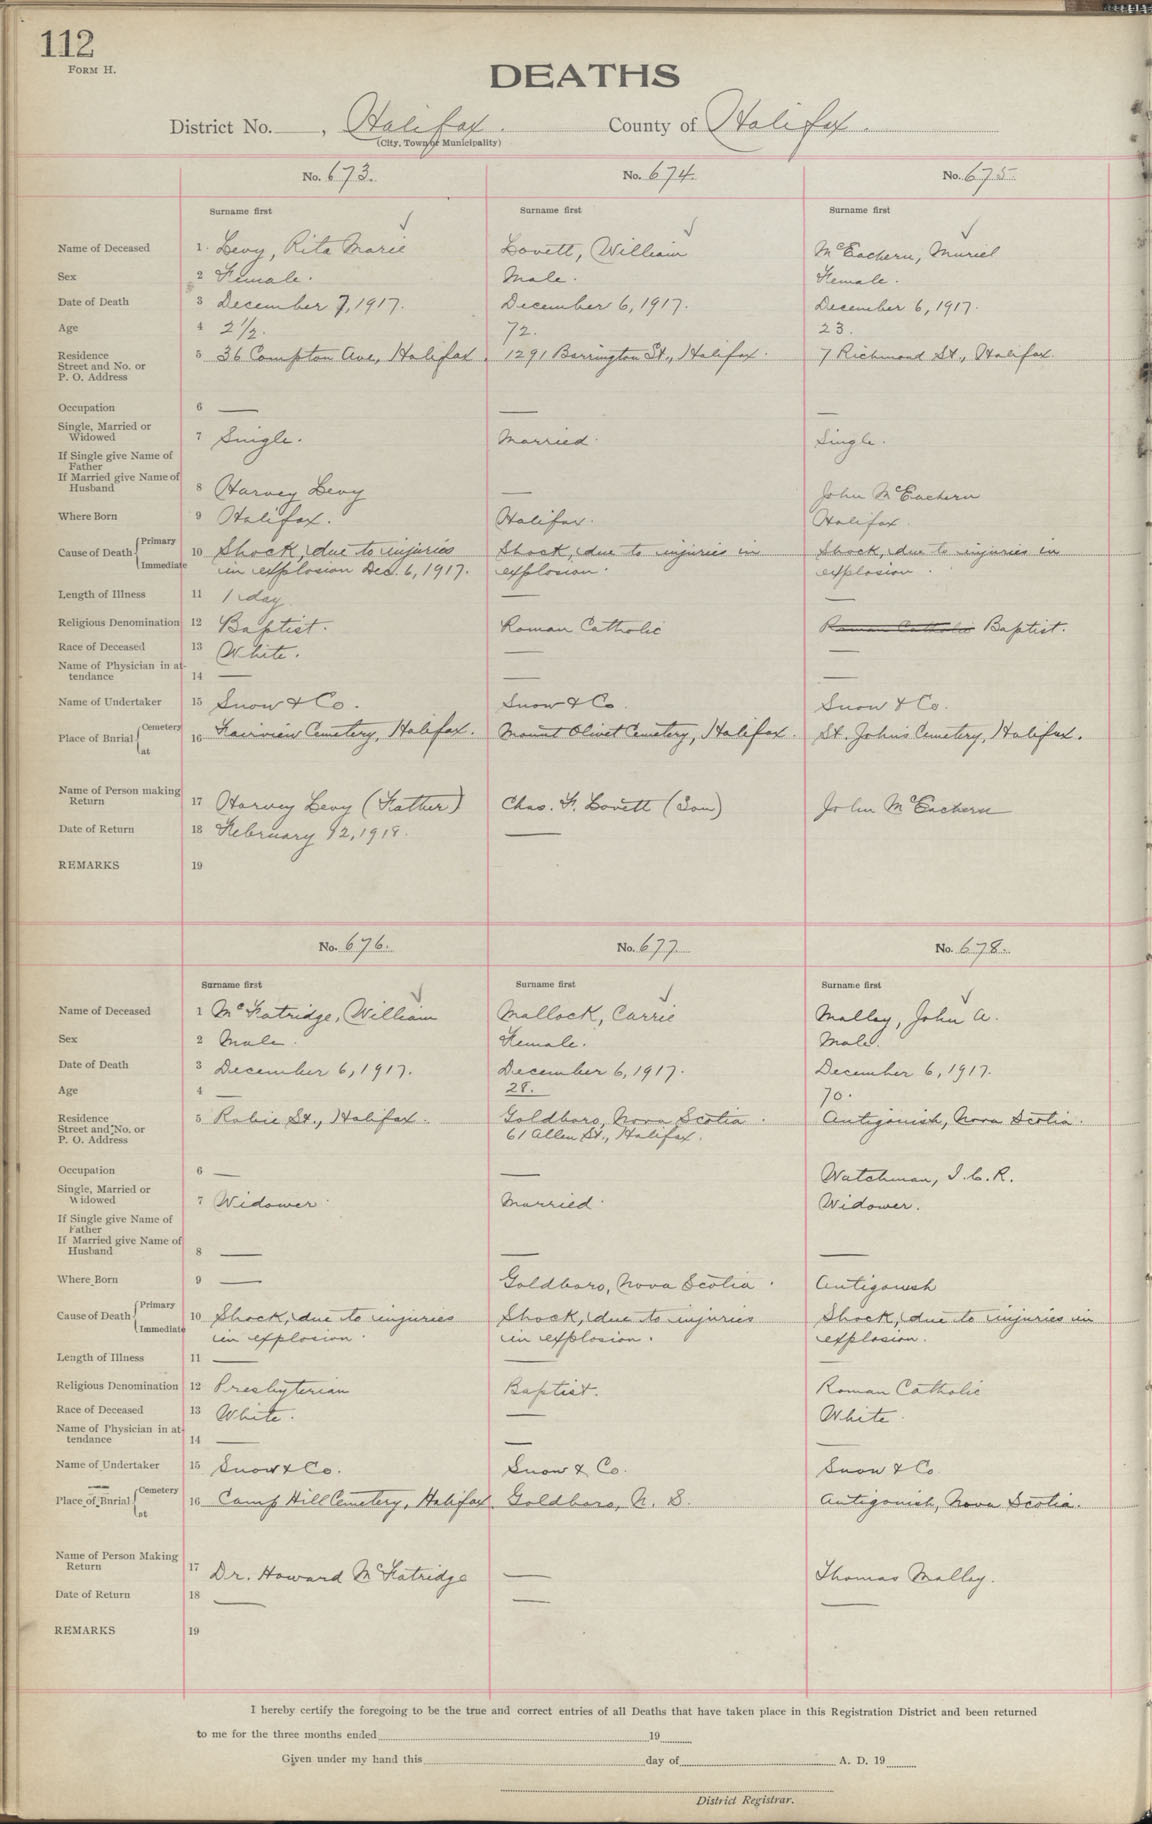 112
FORM H.
DEATHS
District No. , Halifax. County of Halifax.
(City, Town or Municipality)
No. 673. No. 674. No. 675.
Surname first Surname first Surname first
Name of Deceased 1. Levy, Rita Marie Lovett, William McEachern, Muriel
Sex 2 Female. Male. Female.
Date of Death 3 December 7, 1917. December 6, 1917. December 6, 1917.
Age 4 2 1/2. 72. 23.
Residence 5 36 Compton Ave, Halifax. 1291 Barrington St., Halifax. 7 Richmond St., Halifax.
Street and No. or
P. O. Address
Occupation 6 — — —
Single, Married or
Widowed 7 Single. Married. Single.
If Single give Name of
Father
If Married give Name of
Husband 8 Harvey Levy — John McEachern
Where Born 9 Halifax. Halifax. Halifax.
Cause of Death Primary 10 Shock, due to injuries Shock, due to injuries in Shock, due to injuries in
Immediate in explosion Dec. 6, 1917. explosion. explosion.
Length of Illness 11 1 day — —
Religious Denomination 12 Baptist. Roman Catholic Roman Catholic Baptist.
Race of Deceased 13 White. — —
Name of Physician in at-
tendance 14 — — —
Name of Undertaker 15 Snow & Co. Snow & Co. Snow & Co.
Place of Burial Cemetery 16 Fairview Cemetery, Halifax. Mount Olivet Cemetery, Halifax. St. John's Cemetery, Halifax.
at
Name of Person making
Return 17 Harvey Levy (Father) Chas. F. Lovett (Son) John McEachern
Date of Return 18 February 12, 1918. —
REMARKS 19
No. 676. No. 677 No. 678.
Surname first Surname first Surname first
Name of Deceased 1 McFatridge, William Mallock, Carrie Malloy, John A.
Sex 2 Male. Female. Male.
Date of Death 3 December 6, 1917. December 6, 1917. December 6, 1917.
Age 4 — 28. 70.
Residence 5 Robie St., Halifax. Goldboro, Nova Scotia. Antigonish, Nova Scotia.
Street and No. or 61 Allen St., Halifax.
P. O. Address
Occupation 6 — — Watchman, I.C.R.
Single, Married or
Widowed 7 Widower. Married. Widower.
If Single give Name of
Father
If Married give Name of
Husband 8 — — —
Where Born 9 — Goldboro, Nova Scotia. Antigonish
Cause of Death Primary 10 Shock, due to injuries Shock, due to injuries Shock, due to injuries in
Immediate in explosion. in explosion. explosion.
Length of Illness 11 — — —
Religious Denomination 12 Presbyterian Baptist. Roman Catholic
Race of Deceased 13 White. — White.
Name of Physician in at-
tendance 14 — — —
Name of Undertaker 15 Snow & Co. Snow & Co. Snow & Co.
Place of Burial Cemetery 16 Camp Hill Cemetery, Halifax. Goldboro, N. S. Antigonish, Nova Scotia.
at
Name of Person Making
Return 17 Dr. Howard McFatridge — Thomas Malloy.
Date of Return 18 — — —
REMARKS 19
I hereby certify the foregoing to be the true and correct entries of all Deaths that have taken place in this Registration District and been returned
to me for the three months ended 19
Given under my hand this day of A. D. 19
District Registrar.